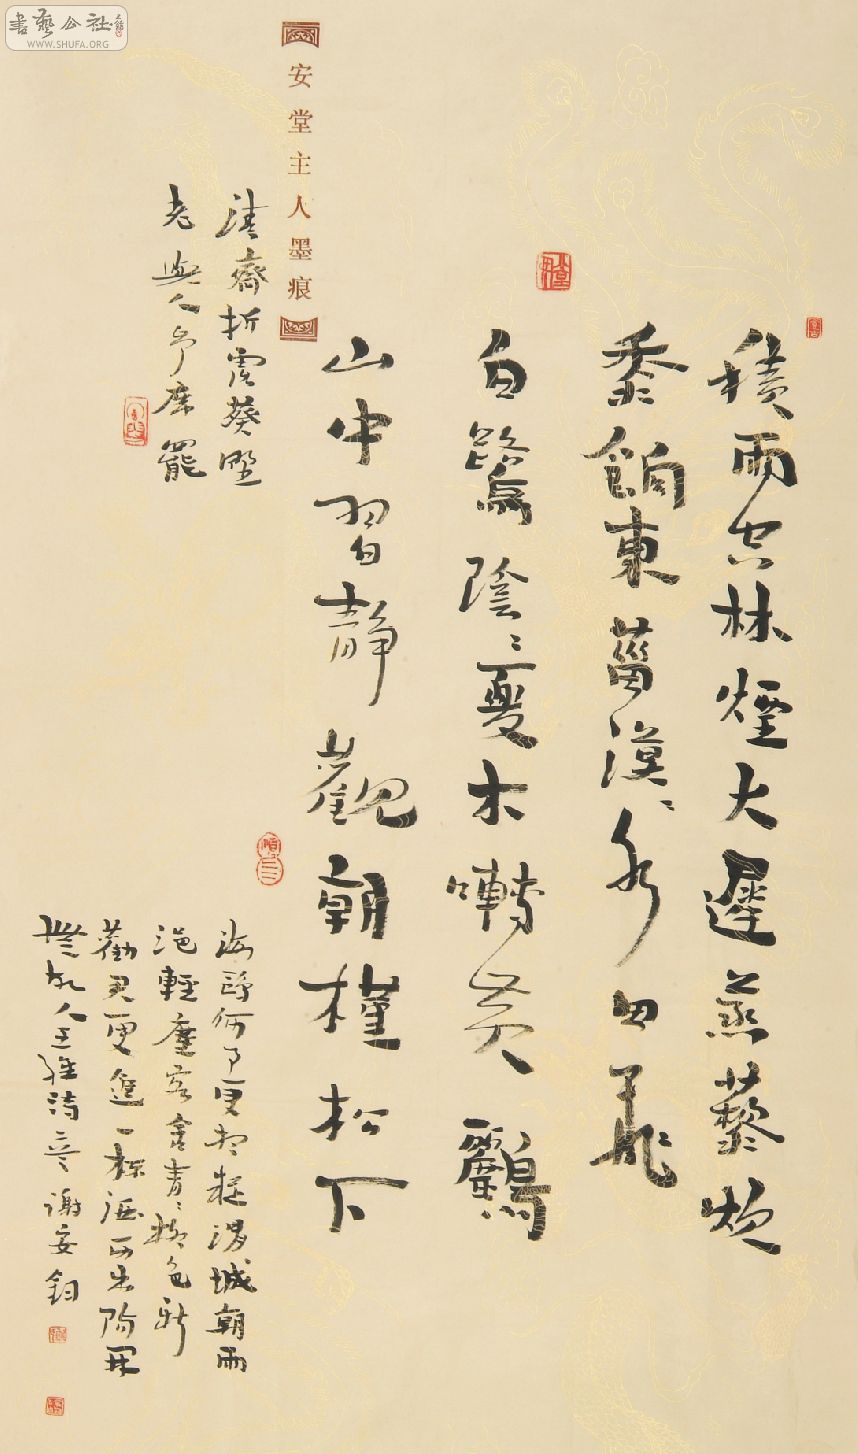 書藝公社
WWW.SHUFA.ORG
積雨空林煙火遲蒸藜炊
黍餉東菑漠〻水田飛
白鷺陰〻夏木囀黃鸝
山中習靜觀朝槿松下
安堂主人墨痕
清齋折露葵野
老與人爭席罷
海鷗何事更相疑渭城朝雨
浥輕塵客舍青〻柳色新
勸君更進一杯酒西出陽關
無故人王維詩二首謝安鈞